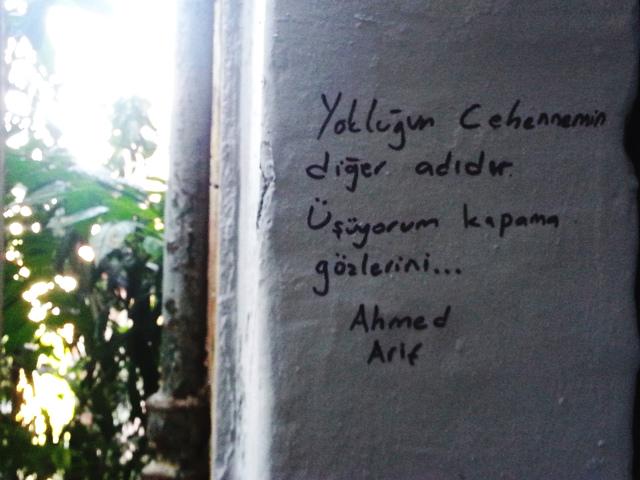 Yokluğun Cehennemin
diğer adıdır.
Üşüyorum kapama
gözlerini...
Ahmed
Arif